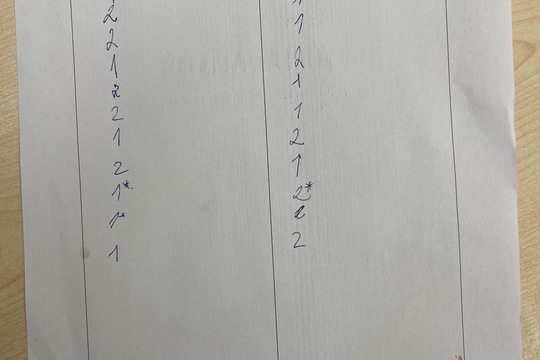 2 1
2 1
1 2
2 1
2 1
1 2
2 1
1* 2*
1* 2
1 2